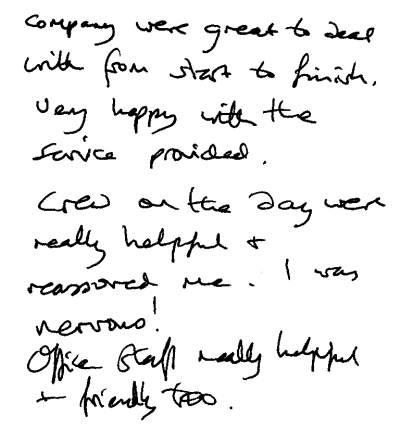 Company were great to deal
with from start to finish.
Very happy with the
service provided.
Crew on the day were
really helpful +
reassured me. I was
nervous!
Office staff really helpful
+ friendly too.